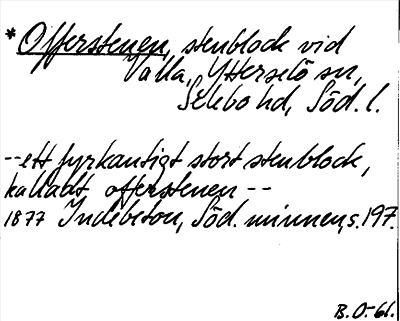 *Offerstenen, stenblock vid
Valla, Ytterselö sn,
Selebo hd, Söd. l.
--ett fyrkantigt stort stenblock,
kalladt offerstenen --
1877 Indebetou, Söd. minnen, s. 197.
B. O-61.